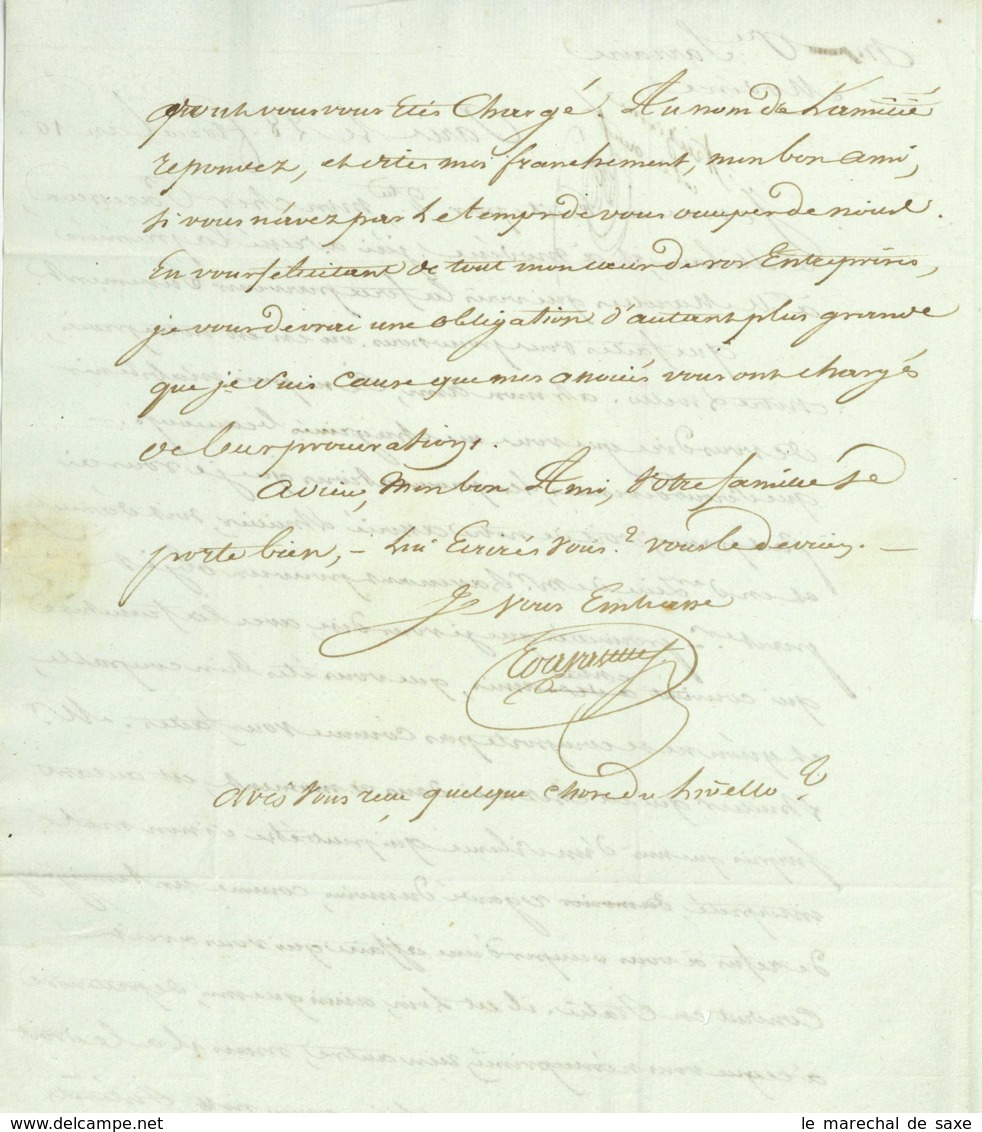 dont vous vous etés Chargé. Au nom de L'amitié
repondez, et dites moi franchement, mon bon ami,
si vous n'avez pas Le temps de vous occuper de nous.
En vous felicitant de tout mon cœur de vos Entreprises,
je vous devrai une obligation d'autant plus grande
que je suis cause que mes associés vous ont chargés
de leur procuration.
adieu, Mon bon Ami, Votre famille se
porte bien, — Lui Ecrivés vous? vous le devriez. —
Je Vous Embrasse
avés vous reçu quelque chose du
le marechal de saxe